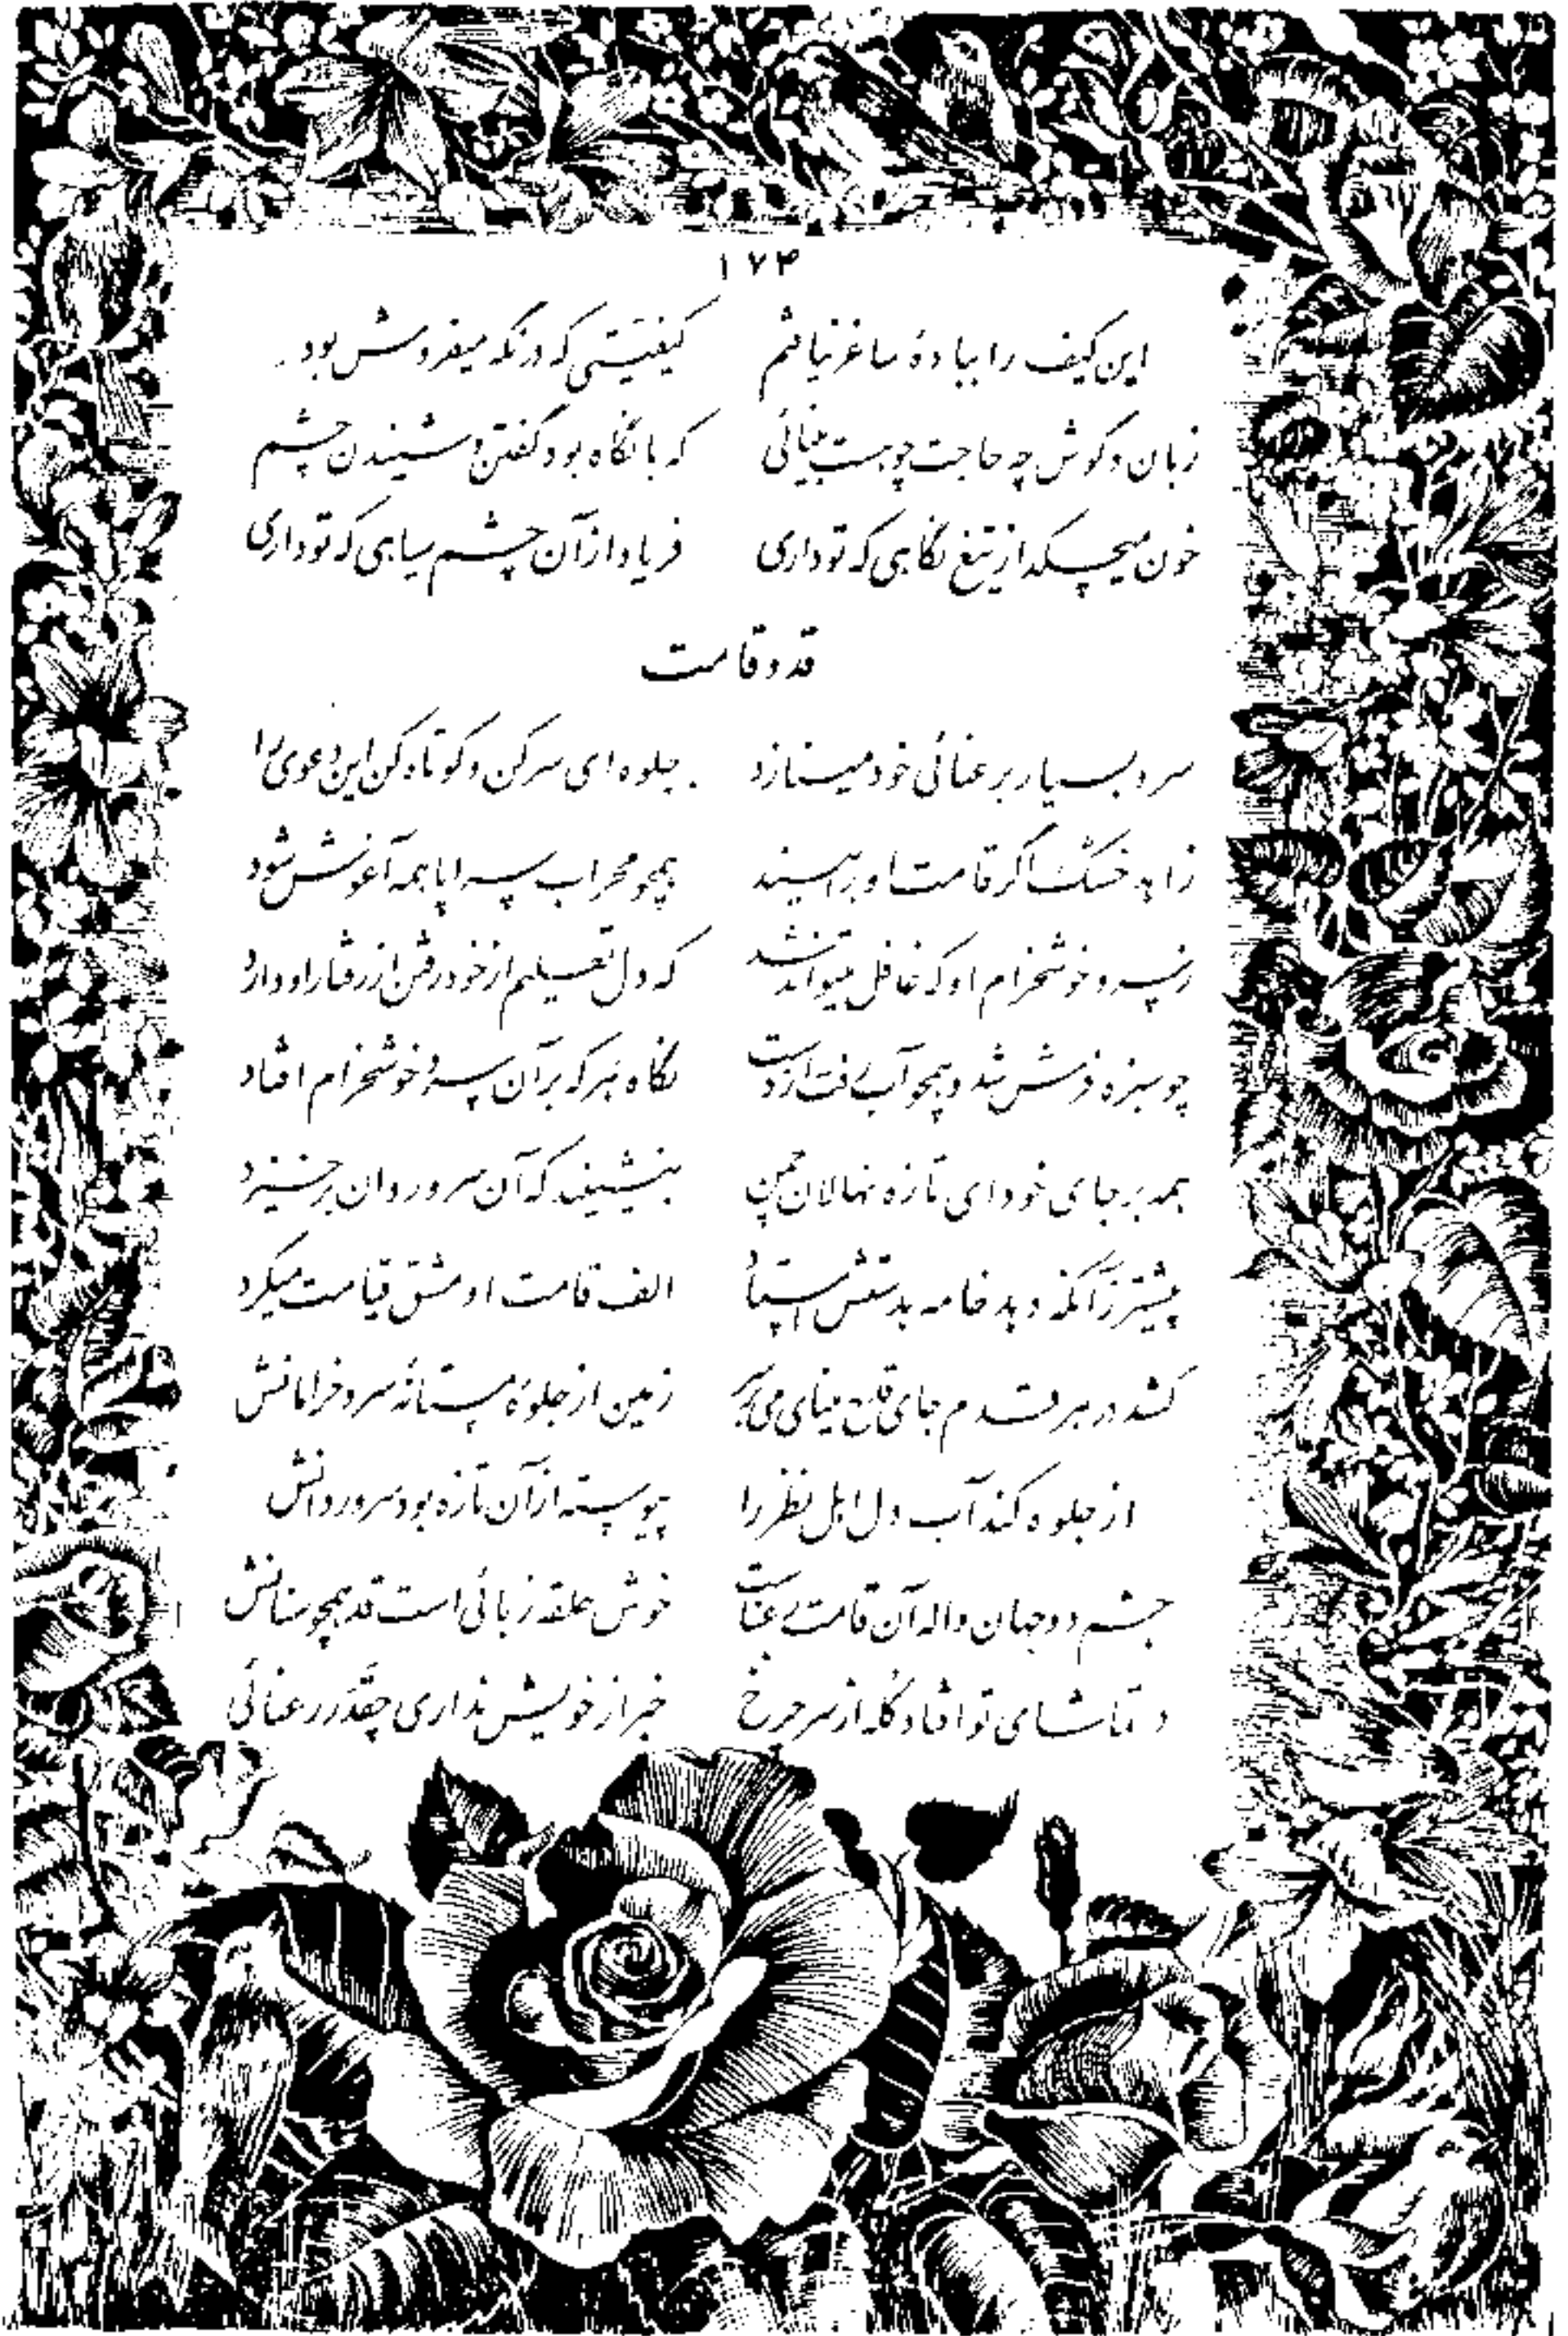 ۱۷۴
این کیف را بباده ساغر نیافتم کیفیتی که در نگه میفروش بود
زبان و گوش چه حاجت چو هست بینائی که با نگاه بود گفتن و شنیدن چشم
خون میچکد از تیغ نگاهی که تو داری فریاد از آن چشم سیاهی که تو داری
قد و قامت
سرو بسیار برعنائی خود مینازد جلوه‌ای سر کن و کوتاه کن این دعوی را
زاهد خشک اگر قامت او را بیند همچو محراب سراپا همه آغوش شود
ز سرو خوشخرام او که غافل میتواند شد که دل تعلیم از خود رفتن از رفتار او دارد
چو سبزه فرش شد و همچو آب رفت از دست نگاه هر که بر آن سرو خوشخرام افتاد
همه بر جای خود ای تازه نهالان چمن بنشینید که آن سرو روان برخیزد
پیشتر زآنکه دهد خامه بدستش استاد الف قامت او مشق قیامت میکرد
کشد در هر قدم جای قدح مینای می بر سر زمین از جلوهٔ مستانهٔ سرو خرامانش
از جلوه کند آب دل اهل نظر را پیوسته از آن تازه بود سرو روانش
چشم دو جهان واله آن قامت رعناست خوش علقه ربائی است قد همچو سنانش
در تماشای تو افتاد کله از سر چرخ خبر از خویش نداری چقدر رعنائی